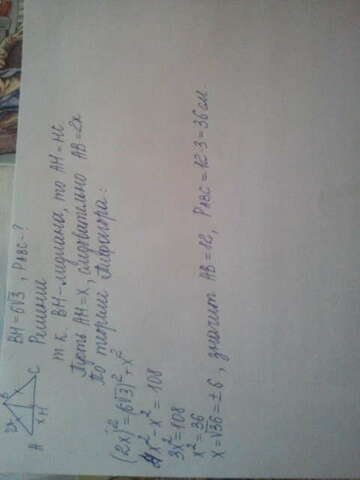 2x
B
x
A
H
C
BH=6√3, PABC-?
Решение
т к BH-медиана, то AH=HC
Пусть AH=x, следовательно AB=2x
По теореме Пифагора:
(2x)²=(6√3)²+x²
4x²-x²=108
3x²=108
x²=36
x=√36=±6, значит AB=12, PABC=12·3=36см